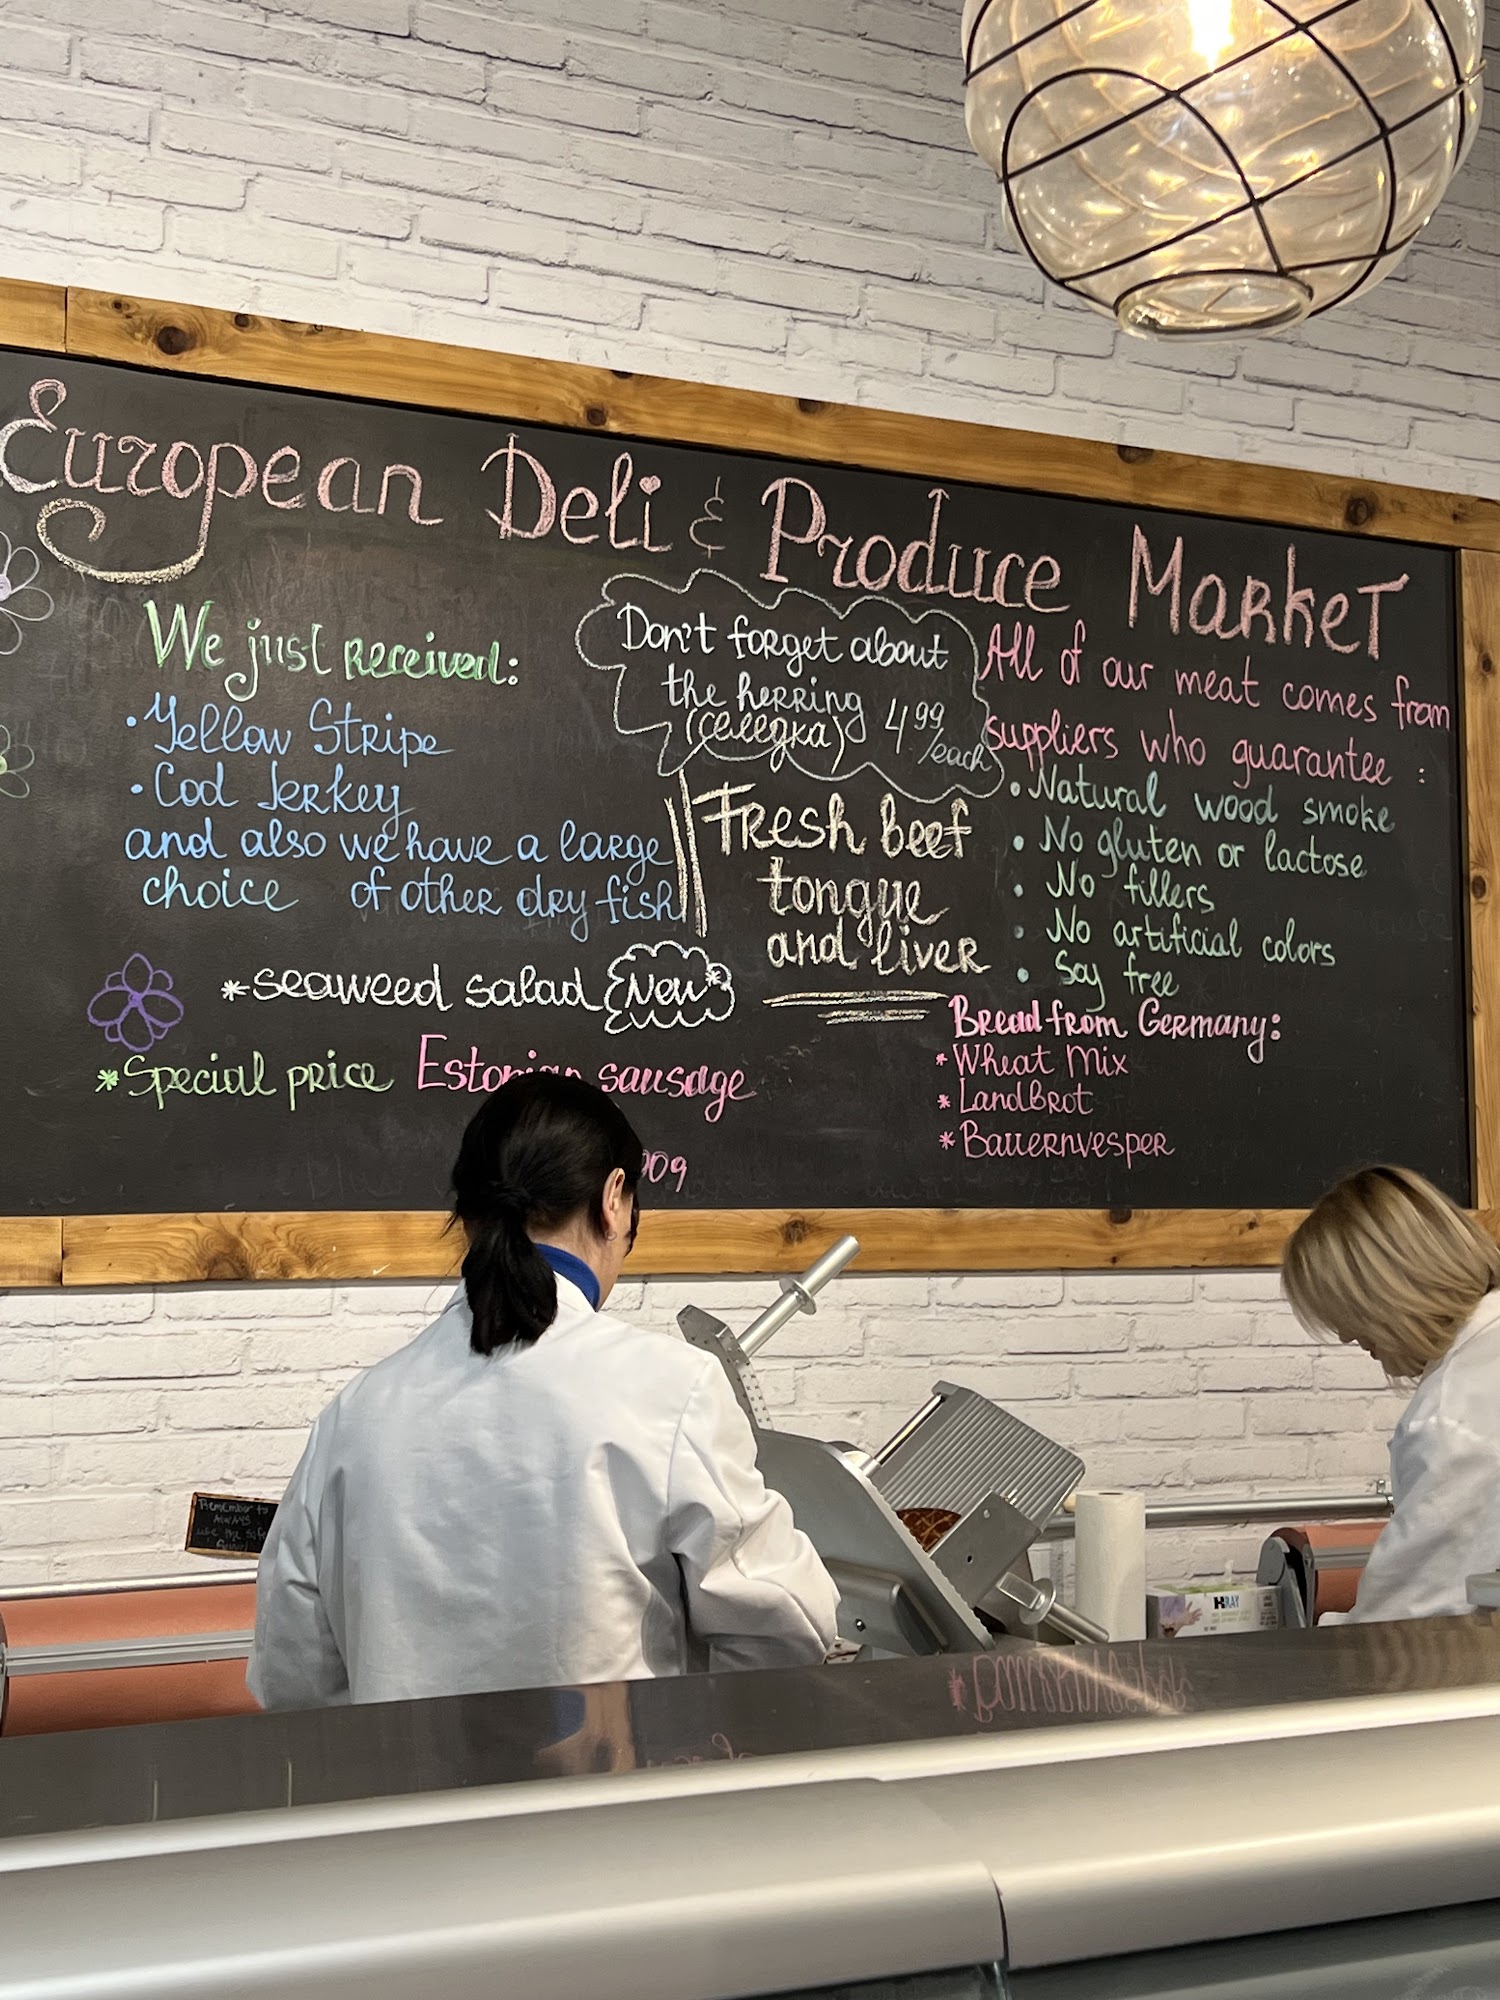 European Deli & Produce Market
We just received:
• Yellow Stripe
• Cod Jerkey
and also we have a large
choice of other dry fish
*seaweed salad New*
*Special price Estonian sausage
Don't forget about
the herring
(селедка) 4.99/each
Fresh beef
tongue
and liver
All of our meat comes from
suppliers who guarantee:
• Natural wood smoke
• No gluten or lactose
• No fillers
• No artificial colors
• Soy free
Bread from Germany:
* Wheat Mix
* LandBrot
* Bauernvesper
Remember to
always
use the
X-RAY